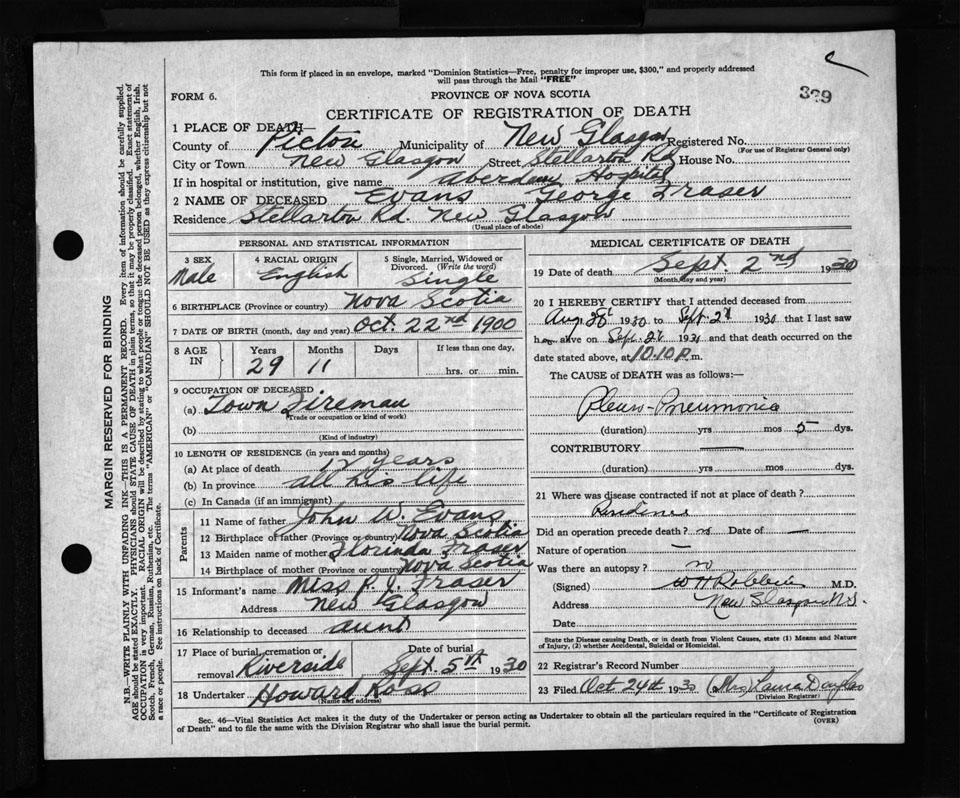 This form if placed in an envelope, marked "Dominion Statistics—Free, penalty for improper use, $300," and properly addressed
will pass through the Mail "FREE"
FORM 6.
PROVINCE OF NOVA SCOTIA
399
CERTIFICATE OF REGISTRATION OF DEATH
1 PLACE OF DEATH—
County of Pictou Municipality of New Glasgow Registered No.
(For use of Registrar General only)
City or Town New Glasgow Street Stellarton Rd House No.
If in hospital or institution, give name Aberdeen Hospital
2 NAME OF DECEASED Evans George Fraser
Residence Stellarton Rd. New Glasgow
(Usual place of abode)
PERSONAL AND STATISTICAL INFORMATION
3 SEX 4 RACIAL ORIGIN 5 Single, Married, Widowed or
Divorced. (Write the word)
Male English Single
6 BIRTHPLACE (Province or country) Nova Scotia
7 DATE OF BIRTH (month, day and year) Oct. 22nd 1900
8 AGE IN Years Months Days If less than one day,
29 11 hrs. or min.
9 OCCUPATION OF DECEASED
(a) Town Fireman
(Trade or occupation or kind of work)
(b)
(Kind of industry)
10 LENGTH OF RESIDENCE (in years and months)
(a) At place of death 12 years
(b) In province all his life
(c) In Canada (if an immigrant)
Parents
11 Name of father John W. Evans
12 Birthplace of father (Province or country) Nova Scotia
13 Maiden name of mother Florinda Fraser
14 Birthplace of mother (Province or country) Nova Scotia
15 Informant's name Miss P. J. Fraser
Address New Glasgow
16 Relationship to deceased aunt
17 Place of burial, cremation or removal Date of burial
Riverside Sept. 5th 1930
18 Undertaker Howard Ross
(Name and address)
MEDICAL CERTIFICATE OF DEATH
19 Date of death Sept. 2nd 1930
(Month, day and year)
20 I HEREBY CERTIFY that I attended deceased from
Aug 28 1930 to Sept. 2d 1930 that I last saw
h alive on Sept. 2d 1930 and that death occurred on the
date stated above, at 10.10 P.m.
The CAUSE of DEATH was as follows:—
Pleuro-Pneumonia
(duration) yrs mos 5 dys.
CONTRIBUTORY —
(duration) yrs mos dys.
21 Where was disease contracted if not at place of death?
Residence
Did an operation precede death? no Date of —
Nature of operation —
Was there an autopsy? no
(Signed) W H Robbins M.D.
Address New Glasgow N.S.
Date
State the Disease causing Death, or in death from Violent Causes, state (1) Means and Nature
of Injury, (2) whether Accidental, Suicidal or Homicidal.
22 Registrar's Record Number
23 Filed Oct 24th 1930 (Mrs) Laura Douglas
(Division Registrar)
Sec. 46—Vital Statistics Act makes it the duty of the Undertaker or person acting as Undertaker to obtain all the particulars required in the "Certificate of Registration
of Death" and to file the same with the Division Registrar who shall issue the burial permit.
(OVER)
MARGIN RESERVED FOR BINDING
N.B.—WRITE PLAINLY WITH UNFADING INK—THIS IS A PERMANENT RECORD. Every item of information should be carefully supplied.
AGE should be stated EXACTLY. PHYSICIANS should STATE CAUSE OF DEATH in plain terms, so that it may be properly classified. Exact statement of
OCCUPATION is very important. RACIAL ORIGIN will be described by stating to what people or tongue the deceased person belonged, whether English, Irish,
Scotch, French, German, Russian, Ruthenian, etc. The terms "AMERICAN" or "CANADIAN" SHOULD NOT BE USED as they express citizenship but not
a race or people. See instructions on back of Certificate.